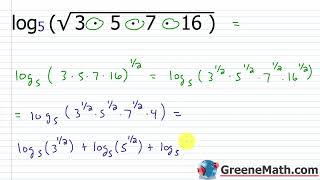 log₅ (√3 · 5 · 7 · 16 ) =
log₅ ( 3 · 5 · 7 · 16 )^1/2 = log₅ (3^1/2 · 5^1/2 · 7^1/2 · 16^1/2)
= log₅ (3^1/2 · 5^1/2 · 7^1/2 · 4) =
log₅ (3^1/2) + log₅ (5^1/2) + log₅
GreeneMath.com